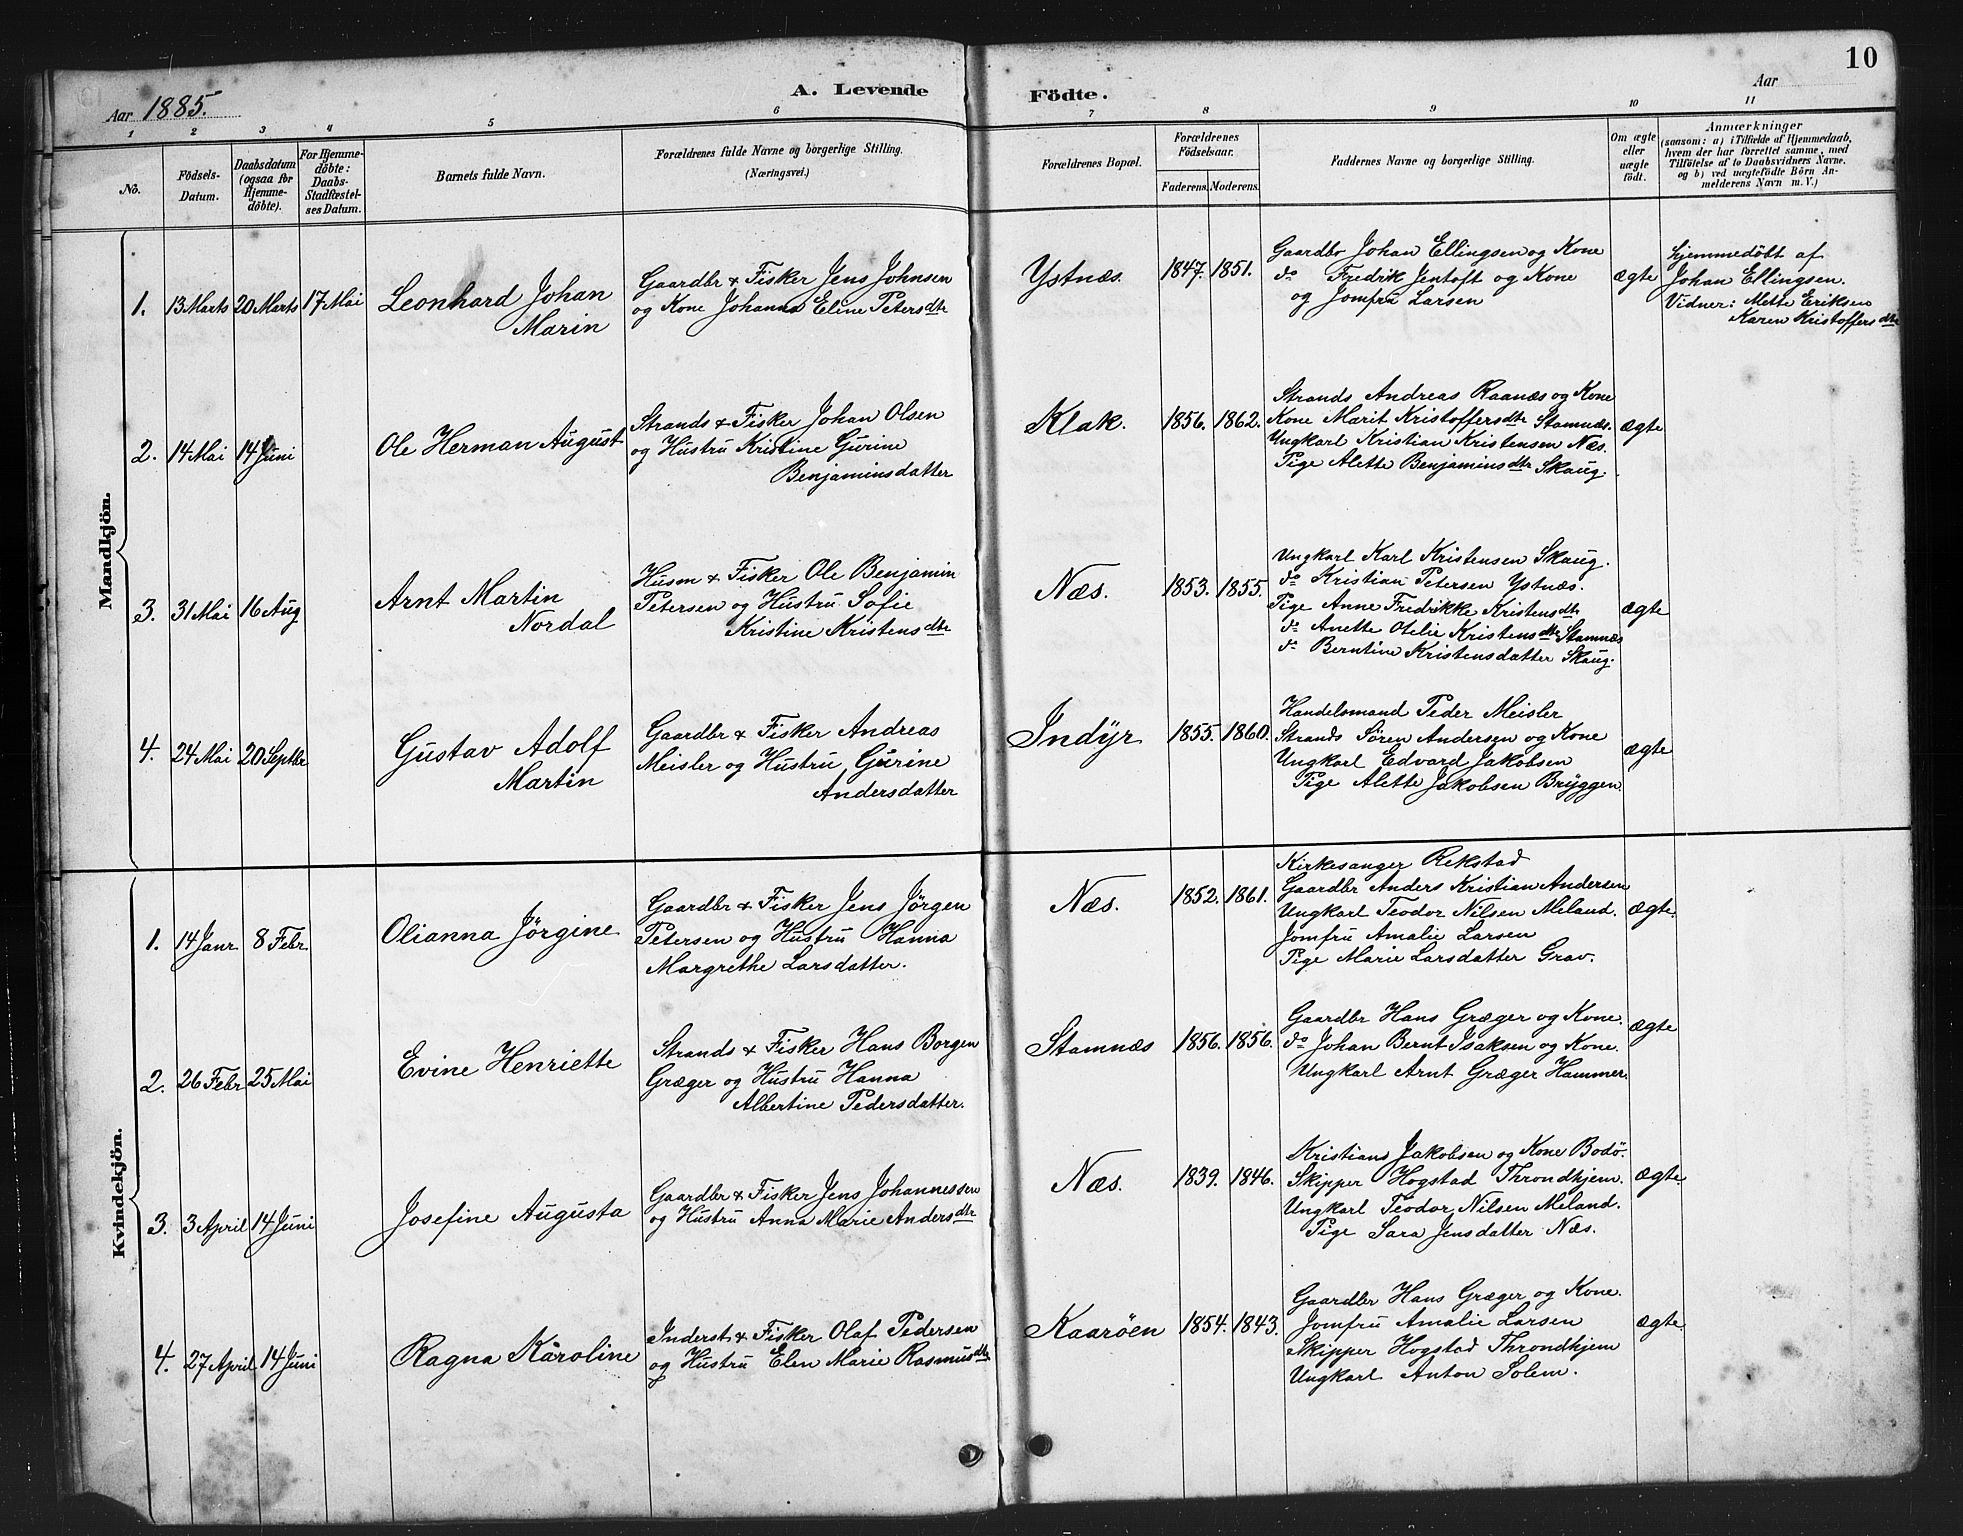 10
Aar 1885.
A. Levende
Födte.
Aar
1 2 3 4 5 6 7 8 9 10 11
No.
Födsels-
Datum.
Daabsdatum
(ogsaa for
Hjemme-
döbte).
For Hjemme-
döbte:
Daabs-
Stadfæstel-
ses Datum.
Barnets fulde Navn.
Forældrenes fulde Navne og borgerlige Stilling.
(Næringsvei.)
Forældrenes Bopæl.
Forældrenes
Födselsaar.
Faderens. Moderens.
Faddernes Navne og borgerlige Stilling.
Om ægte
eller
uægte
födt.
Anmærkninger
(saasom: a) i Tilfælde af Hjemmedaab,
hvem der har forrettet samme, med
Tilföielse af to Daabsvidners Navne.
og b) ved uægtefödte Börn An-
melderens Navn m. V.)
Mandkjön.
1. 13 Marts 20 Marts 17 Mai
Leonhard Johan
Marin
Gaardbr & Fisker Jens Johnsen
og Kone Johanna Eline Petersdtr
Ystnæs. 1847. 1851.
Gaardbr Johan Ellingsen og Kone
do Fredrik Jentoft og Kone
og Jomfru Larsen
ægte
Hjemmedöbt af
Johan Ellingsen.
Vidner: Mette Eriksen
Karen Kristoffersdtr
2. 14 Mai 14 Juni
Ole Herman August
Strands & Fisker Johan Olsen
og Hustru Kristine Gurine
Benjaminsdatter
Klak. 1856. 1862.
Strands Andreas Raanæs og Kone
Kone Marit Kristoffersdtr Stamnæs.
Ungkarl Kristian Kristensen Næs.
Pige Alette Benjaminsdtr Skaug.
ægte
3. 31 Mai 16 Aug
Arnt Martin
Nordal
Husm & Fisker Ole Benjamin
Petersen og Hustru Sofie
Kristine Kristensdtr
Næs. 1853. 1855.
Ungkarl Karl Kristensen Skaug.
do Kristian Petersen Ystnæs.
Pige Anne Fredrikke Kristensdtr
do Anette Otelie Kristensdtr Stamnæs
do Berntine Kristensdatter Skaug.
ægte
4. 24 Mai 20 Septbr
Gustav Adolf
Martin
Gaardbr & Fisker Andreas
Meisler og Hustru Gurine
Andersdatter
Indyr 1855. 1860.
Handelsmand Peder Meisler
Strands Sören Andersen og Kone
Ungkarl Edvard Jakobsen
Pige Alette Jakobsen Bryggen.
ægte
Kvindekjön.
1. 14 Janr 8 Febr
Olianna Jörgine
Gaardbr & Fisker Jens Jörgen
Petersen og Hustru Hanna
Margrethe Larsdatter.
Næs. 1852. 1861.
Kirkesanger Rekstad
Gaardbr Anders Kristian Andersen
Ungkarl Teodor Nilsen Meland.
Jomfru Amalie Larsen
Pige Marie Larsdatter Grav.
ægte.
2. 26 Febr 25 Mai
Evine Henriette
Strands & Fisker Hans Borgen
Græger og Hustru Hanna
Albertine Pedersdatter.
Stamnæs 1856. 1856.
Gaardbr Hans Græger og Kone.
do Johan Bernt Isaksen og Kone.
Ungkarl Arnt Græger Hammer.
ægte
3. 3 April 14 Juni
Josefine Augusta
Gaardbr & Fisker Jens Johannessen
og Hustru Anna Marie Andersdtr
Næs. 1839. 1846.
Kristians Jakobsen og Kone Bodö.
Skipper Hogstad Throndhjem.
Ungkarl Teodor Nilsen Meland.
Pige Sara Jensdatter Næs.
ægte.
4. 27 April 14 Juni
Ragna Karoline
Inderst & Fisker Olaf Pedersen
og Hustru Elen Marie Rasmusdtr
Kaaröen 1854. 1843.
Gaardbr Hans Græger og Kone.
Jomfru Amalie Larsen
Skipper Hogstad Throndhjem
Ungkarl Anton Solem.
ægte.